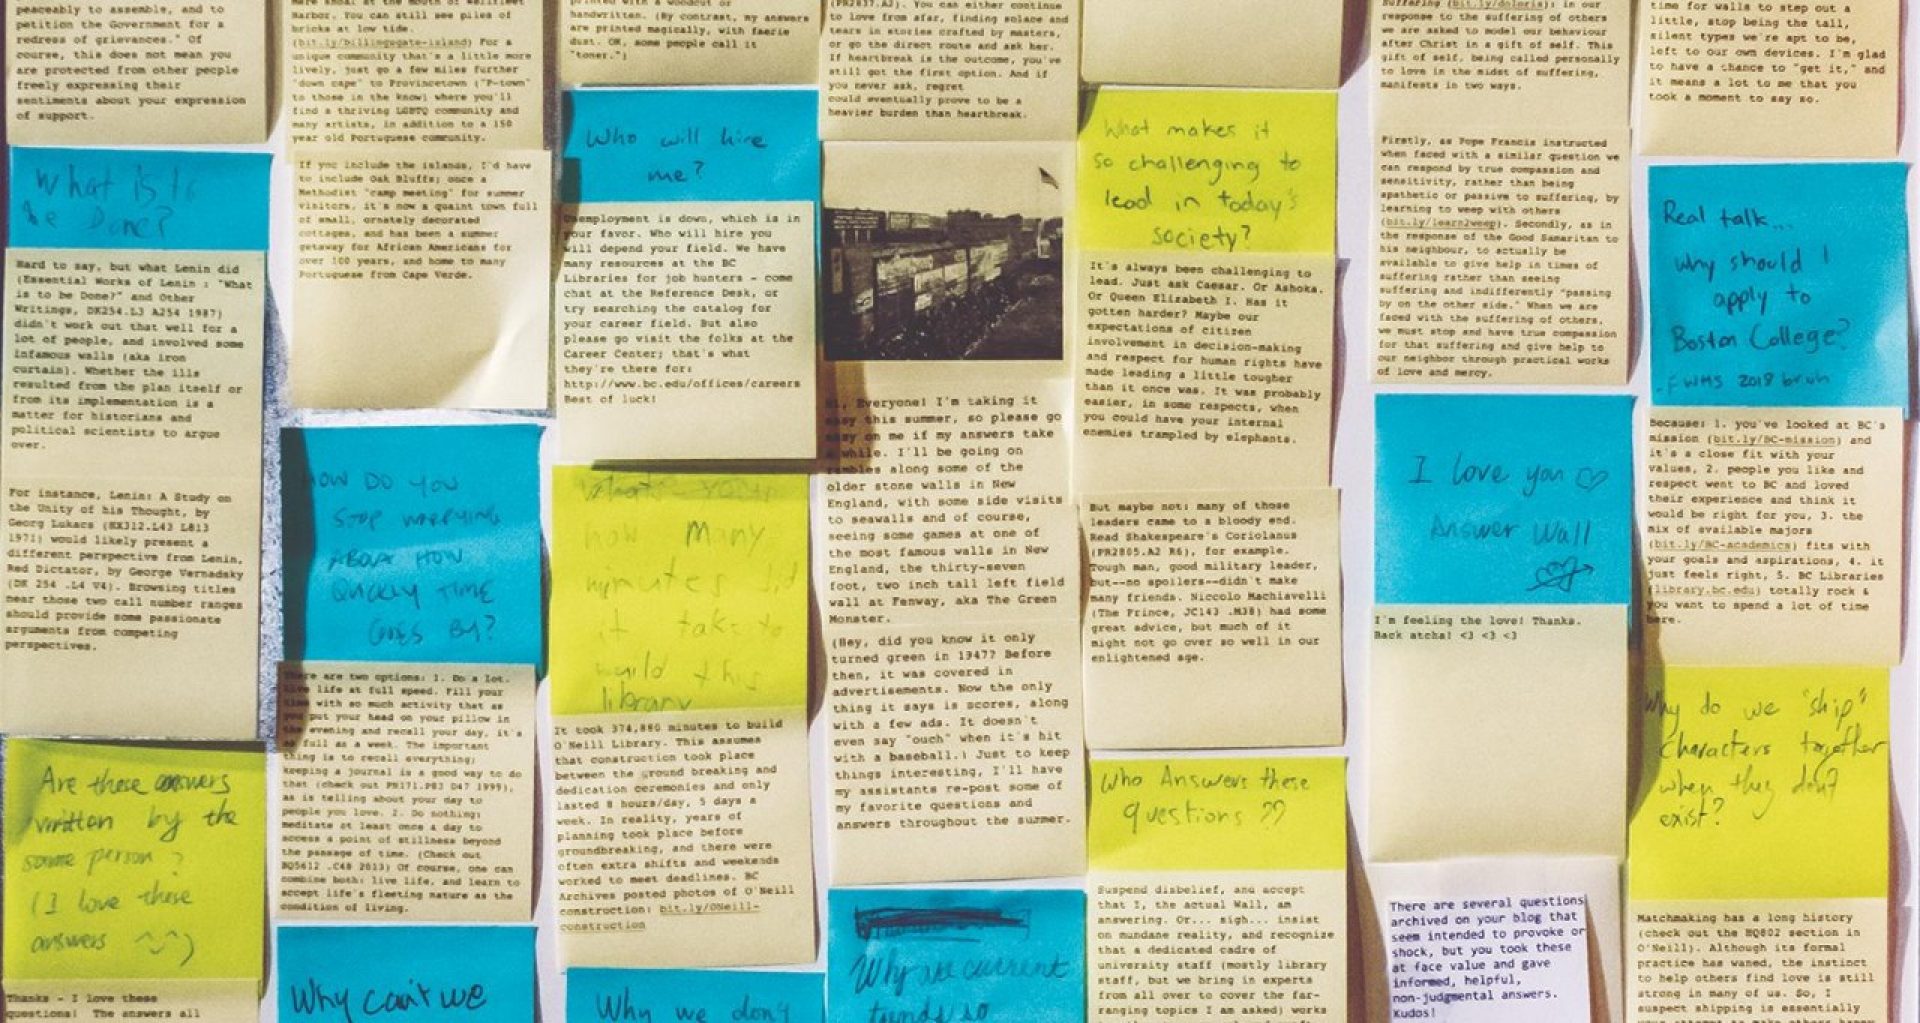 peaceably to assemble, and to
petition the Government for a
redress of grievances." Of
course, this does not mean you
are protected from other people
freely expressing their
sentiments about your expression
of support.
What is to
be Done?
Hard to say, but what Lenin did
(Essential Works of Lenin : "What
is to be Done?" and Other
Writings, DK254.L3 A254 1987)
didn't work out that well for a
lot of people, and involved some
infamous walls (aka iron
curtain). Whether the ills
resulted from the plan itself or
from its implementation is a
matter for historians and
political scientists to argue
over.
For instance, Lenin: A Study on
the Unity of his Thought, by
Georg Lukacs (HX312.L43 L813
1971) would likely present a
different perspective from Lenin,
Red Dictator, by George Vernadsky
(DK 254 .L4 V4). Browsing titles
near those two call number ranges
should provide some passionate
arguments from competing
perspectives.
Are these answers
written by the
same person?
(I love these
answers ^_^)
Thanks - I love these
questions! The answers all
mere shoal at the mouth of Wellfleet
Harbor. You can still see piles of
bricks at low tide.
(bit.ly/billingsgate-island) For a
unique community that's a little more
lively, just go a few miles further
"down cape" to Provincetown ("P-town"
to those in the know) where you'll
find a thriving LGBTQ community and
many artists, in addition to a 150
year old Portuguese community.
If you include the islands, I'd have
to include Oak Bluffs; once a
Methodist "camp meeting" for summer
visitors, it's now a quaint town full
of small, ornately decorated
cottages, and has been a summer
getaway for African Americans for
over 100 years, and home to many
Portuguese from Cape Verde.
HOW DO YOU
STOP WORRYING
ABOUT HOW
QUICKLY TIME
GOES BY?
There are two options: 1. Do a lot.
Live life at full speed. Fill your
time with so much activity that as
you put your head on your pillow in
the evening and recall your day, it's
as full as a week. The important
thing is to recall everything;
keeping a journal is a good way to do
that (check out PN171.P83 D47 1999),
as is telling about your day to
people you love. 2. Do nothing:
meditate at least once a day to
access a point of stillness beyond
the passage of time. (Check out
BQ5612 .C48 2013) Of course, one can
combine both: live life, and learn to
accept life's fleeting nature as the
condition of living.
Why can't we
printed with a woodcut or
handwritten. (By contrast, my answers
are printed magically, with faerie
dust. OK, some people call it
"toner.")
Who will hire
me?
Unemployment is down, which is in
your favor. Who will hire you
will depend your field. We have
many resources at the BC
Libraries for job hunters - come
chat at the Reference Desk, or
try searching the catalog for
your career field. But also
please go visit the folks at the
Career Center; that's what
they're there for:
http://www.bc.edu/offices/careers
Best of luck!
how many
minutes did
it take to
build this
library
It took 374,880 minutes to build
O'Neill Library. This assumes
that construction took place
between the ground breaking and
dedication ceremonies and only
lasted 8 hours/day, 5 days a
week. In reality, years of
planning took place before
groundbreaking, and there were
often extra shifts and weekends
worked to meet deadlines. BC
Archives posted photos of O'Neill
construction: bit.ly/ONeill-
construction
Why we don't
(PR2837.A2). You can either continue
to love from afar, finding solace and
tears in stories crafted by masters,
or go the direct route and ask her.
If heartbreak is the outcome, you've
still got the first option. And if
you never ask, regret
could eventually prove to be a
heavier burden than heartbreak.
Hi, Everyone! I'm taking it
easy this summer, so please go
easy on me if my answers take
a while. I'll be going on
rambles along some of the
older stone walls in New
England, with some side visits
to seawalls and of course,
seeing some games at one of
the most famous walls in New
England, the thirty-seven
foot, two inch tall left field
wall at Fenway, aka The Green
Monster.
(Hey, did you know it only
turned green in 1947? Before
then, it was covered in
advertisements. Now the only
thing it says is scores, along
with a few ads. It doesn't
even say "ouch" when it's hit
with a baseball.) Just to keep
things interesting, I'll have
my assistants re-post some of
my favorite questions and
answers throughout the summer.
Why are current
What makes it
so challenging to
lead in today's
society?
It's always been challenging to
lead. Just ask Caesar. Or Ashoka.
Or Queen Elizabeth I. Has it
gotten harder? Maybe our
expectations of citizen
involvement in decision-making
and respect for human rights have
made leading a little tougher
than it once was. It was probably
easier, in some respects, when
you could have your internal
enemies trampled by elephants.
But maybe not: many of those
leaders came to a bloody end.
Read Shakespeare's Coriolanus
(PR2805.A2 R6), for example.
Tough man, good military leader,
but--no spoilers--didn't make
many friends. Niccolo Machiavelli
(The Prince, JC143 .M38) had some
great advice, but much of it
might not go over so well in our
enlightened age.
Who Answers these
questions ??
Suspend disbelief, and accept
that I, the actual Wall, am
answering. Or... sigh... insist
on mundane reality, and recognize
that a dedicated cadre of
university staff (mostly library
staff, but we bring in experts
from all over to cover the far-
ranging topics I am asked) works
Suffering (bit.ly/doloris): in our
response to the suffering of others
we are asked to model our behaviour
after Christ in a gift of self. This
gift of self, being called personally
to love in the midst of suffering,
manifests in two ways.
Firstly, as Pope Francis instructed
when faced with a similar question we
can respond by true compassion and
sensitivity, rather than being
apathetic or passive to suffering, by
learning to weep with others
(bit.ly/learn2weep). Secondly, as in
the response of the Good Samaritan to
his neighbour, to actually be
available to give help in times of
suffering rather than seeing
suffering and indifferently "passing
by on the other side." When we are
faced with the suffering of others,
we must stop and have true compassion
for that suffering and give help to
our neighbor through practical works
of love and mercy.
I love you ♡
Answer Wall
I'm feeling the love! Thanks.
Back atcha! <3 <3 <3
There are several questions
archived on your blog that
seem intended to provoke or
shock, but you took these
at face value and gave
informed, helpful,
non-judgmental answers.
Kudos!
time for walls to step out a
little, stop being the tall,
silent types we're apt to be,
left to our own devices. I'm glad
to have a chance to "get it," and
it means a lot to me that you
took a moment to say so.
Real talk...
why should I
apply to
Boston College?
Because: 1. you've looked at BC's
mission (bit.ly/BC-mission) and
it's a close fit with your
values, 2. people you like and
respect went to BC and loved
their experience and think it
would be right for you, 3. the
mix of available majors
(bit.ly/BC-academics) fits with
your goals and aspirations, 4. it
just feels right, 5. BC Libraries
(library.bc.edu) totally rock &
you want to spend a lot of time
here.
Why do we "ship"
characters together
when they don't
exist?
Matchmaking has a long history
(check out the HQ802 section in
O'Neill). Although its formal
practice has waned, the instinct
to help others find love is still
strong in many of us. So, I
suspect shipping is essentially